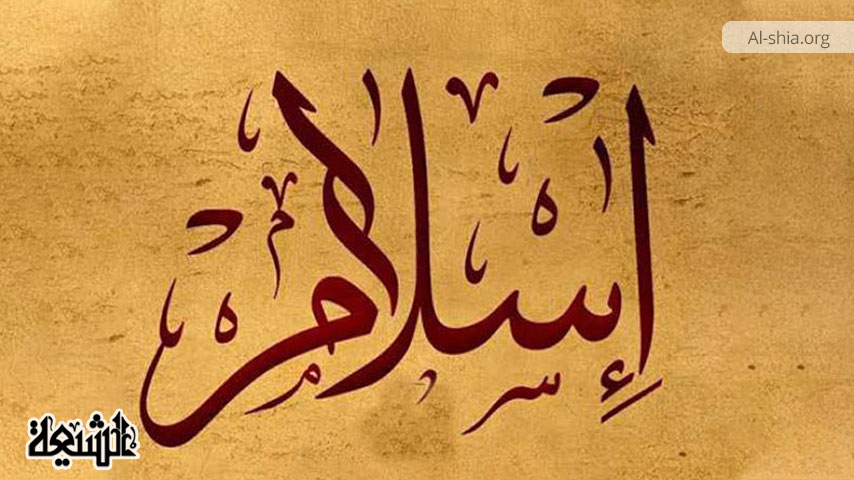 Al-shia.org
إِسلام
الشيعة